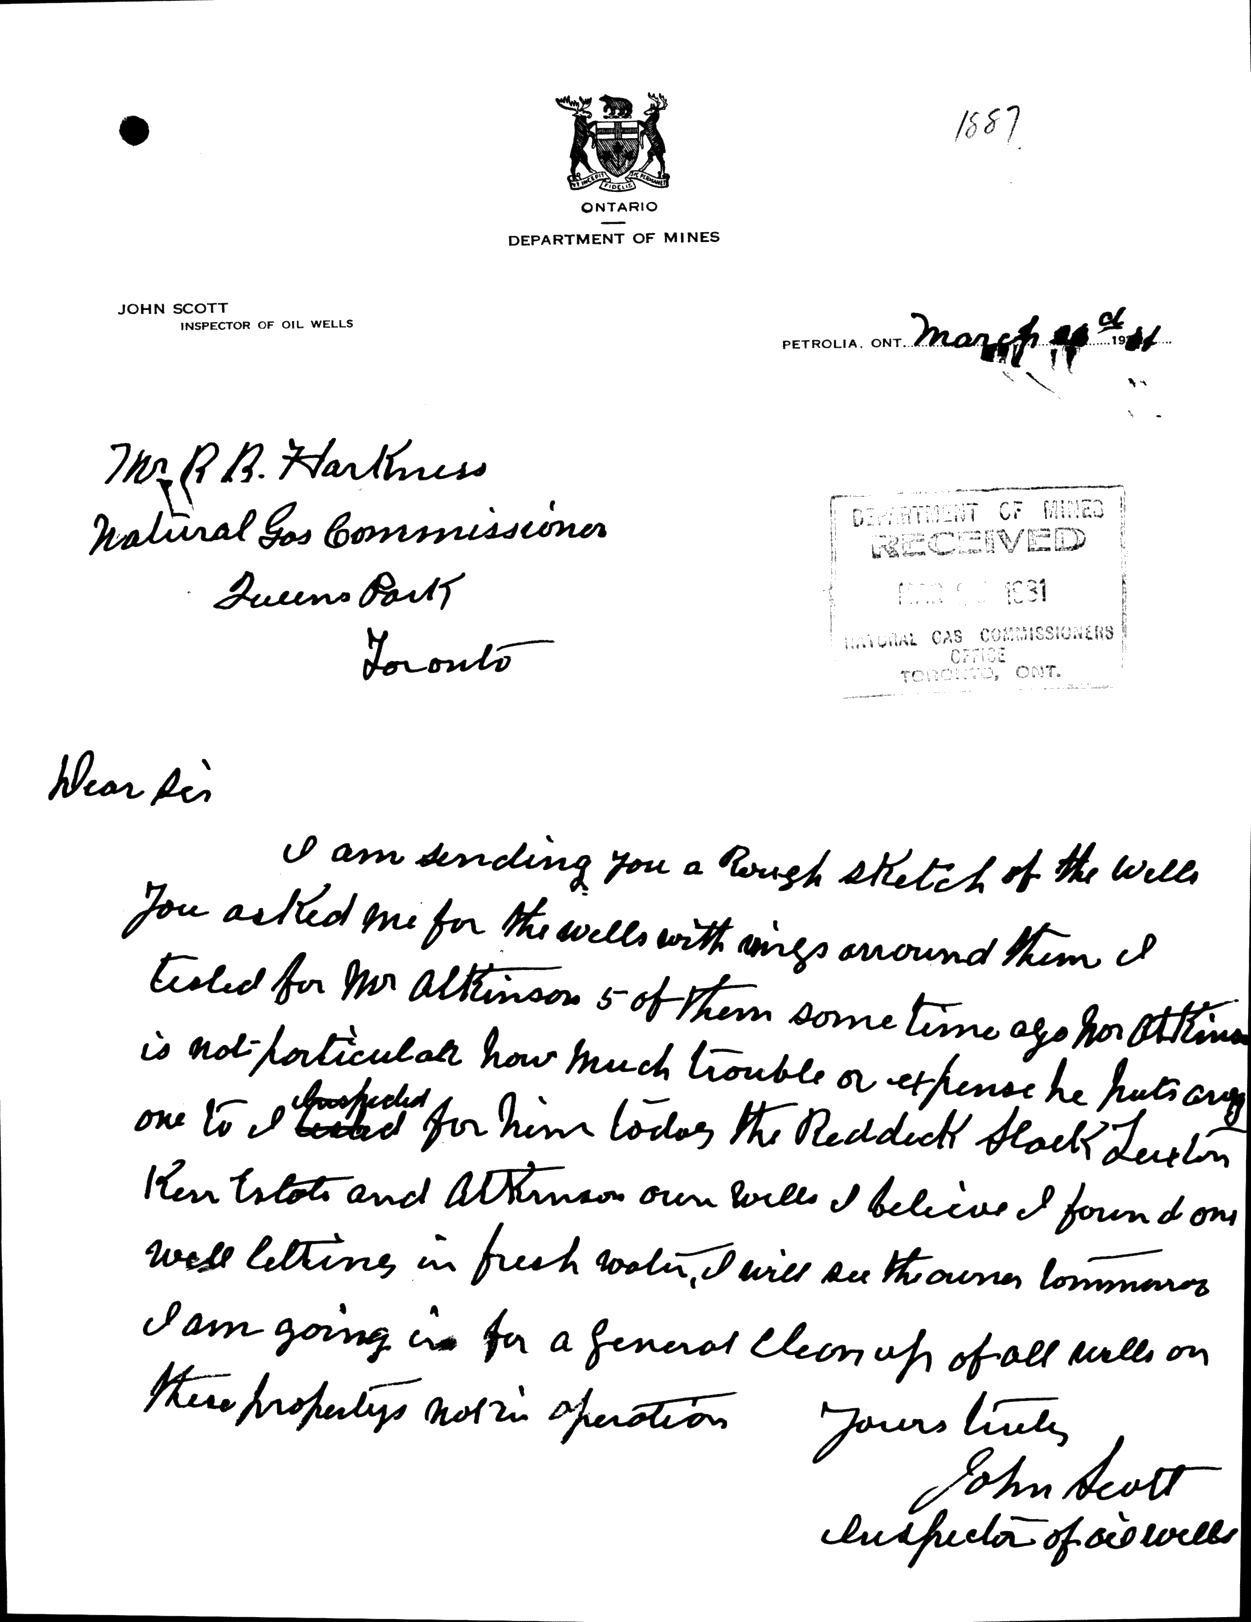 1887
ONTARIO
DEPARTMENT OF MINES
JOHN SCOTT
INSPECTOR OF OIL WELLS
PETROLIA, ONT. March d 19
Mr R B. Harkness
Natural Gas Commissioner
Queens Park
Toronto
DEPARTMENT OF MINES
RECEIVED
MAR 1931
NATURAL GAS COMMISSIONERS
OFFICE
TORONTO, ONT.
Dear Sir
I am sending you a Rough sketch of the wells
You asked me for the wells with rings arround them I
tested for Mr Atkinson 5 of them some time ago Mr Atkinson
is not particular how much trouble or expense he puts any
one to I Inspected for him today the Reddick Slack Luxton
Kerr Estate and Atkinson own wells I believe I found one
well letting in fresh water, I will see the owner tommorow
I am going in for a general clean up of all wells on
these propertys not in operation
Yours truly
John Scott
Inspector of oil wells